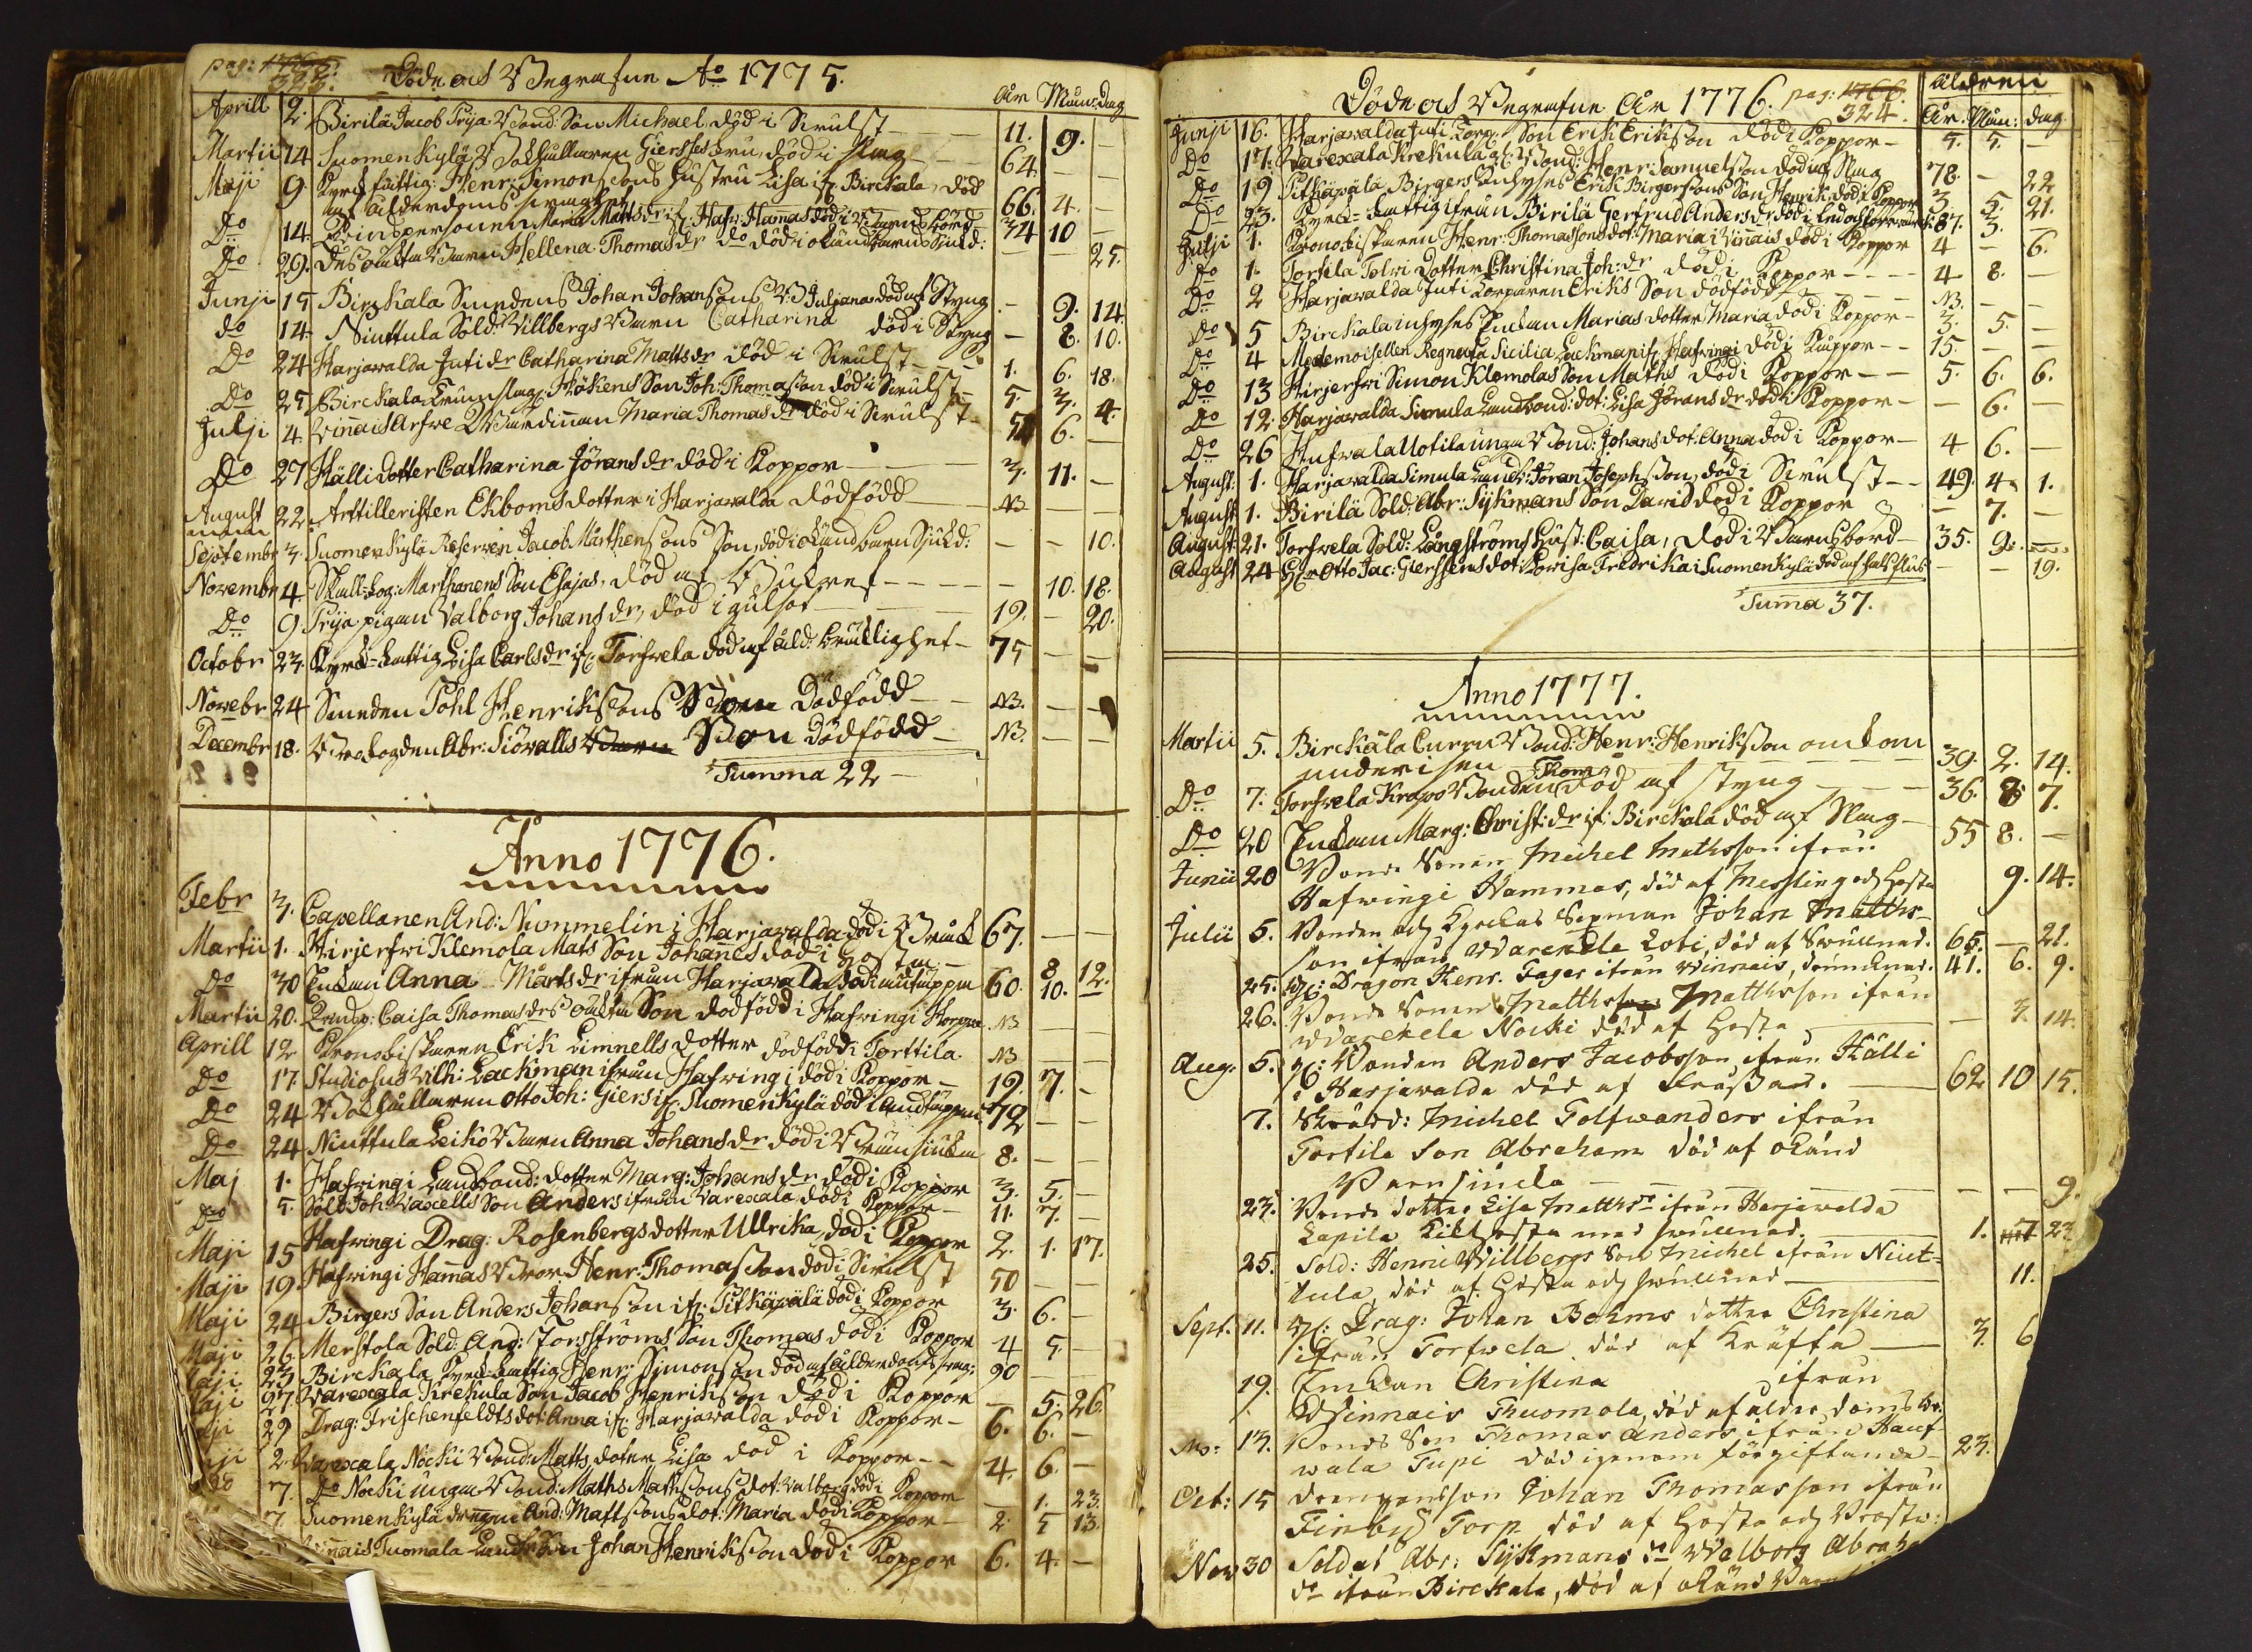 pag: 1765.
323.
Döde och Begrafne Ao 1775.
Åhr Mån: Dag
Aprill 2. Birilä Jacob Prijа Bond: Son Michael död i Swulst 11. 9. -
Martii 14 Suomenkylä Bokhållaren Gierstes Fru, död i Slag 64. - -
Maji 9. Kyrck fattig: Henr: Simonssons hustru Lisa if: Birckala, död
af ålderdoms 66. 4. -
Do 14. Qvinspersonen Maria Matts dr if: Hafr: Hammas död i Barnsbörd 34 10 -
Do 29. Des oäkta Barn Hellena Thomas dr do död i okänd barnsjukd: - - 25.
Junji 15 Birckala Smedens Johan Johanssons B: Juliana död af Styng - 9. 14.
do 14. Niuttula Sold: Villbergs Barn Catharina död i Styng - 8. 10.
Do 24 Harjawalda Juti dr Catharina Matts dr död i Swulst 1. 6. 18.
Do 25 Birckala Son Joh: Thomasson död i Swulst 5. 3. 4.
Julji 4. Vinnais Arfwe Wärdinnan Maria Thomas dr död i Swulst 6. -
Do 27 Hälli dotter Catharina Jörans dr död i Koppor 3. 11. -
August 22. Arttilleristen Ekboms dotter i Harjawalda dödfödd NB - -
Septembr 3. Suomenkylä Reserven Jacob Mårthenssons Son, död i okänd barn Sjukd: - - 10.
Novembr 4. Skall-Fog: Marthanens Son Esajas, död af - 10. 18.
Do 9. Prija pigan Valborg Johans dr, död i gulsot 19. - 20.
Octobr 23. Kyrck-Fattig Lisa Carls dr if: Torfwela död af åld: bräcklighet 75 - -
Novebr 24 Smeden Pohl Henrikssons Son Dödfödd NB. - -
Decembr 18. Abr: Siöwalls Barn Son Dödfödd NB. - -
Summa 22 -
Anno 1776.
Febr 3. Capellanen And: Nummelin i Harjawalda död i Bråck 67. - -
Martii 1. Hirjerfwi Klemola Mats Son Johannes död i Hosta - 8 12.
Do 30 Enckan Anna Mårts dr ifrån Harjawalda död i andtäppa 60. 10. -
Martii 20. Caisa Thomas dr oäkta Son dödfödd i Hafringi NB - -
Aprill 12 Kronobiskaren Erik Limnells dotter dödfödd i Torttila NB - -
Do 17. Studiosus Vilh: Lackman ifrån Hafringi död i Koppor 19. 7. -
Do 24 Bokhållaren Otto Joh: Giers if: Suomenkylä död i Andtäppa 72 - -
Do 24 Niuttula Leiko Barn Anna Johans dr död i Brännsjuka 8. - -
Maj 1. Hafringi Landbond: dotter Marg: Johans dr död i Koppor 3. 5. -
Do 5. Sold Joh: Vaxells Son Anders ifrån Varexala död i Koppor 11. 7. -
Maji 15 Hafringi Drag: Rosenbergs dotter Ullrika, död i Koppor 2. 1. 17.
Maji 19 Hafringi Hammas Bror Henr: Thomasson död i Swulst 50 - -
Maji 24 Birgers Son Anders Johansson if: Pitkäpälä död i Koppor 3. 6. -
Maji 26 Merstola Sold: And: Forsströms Son Thomas död i Koppor 4 5. -
Maji 23 Birckala Kyrck-Fattig Henr: Simonsson död af ålderdoms 90 - -
Maji 27. Varexala Krekula Son Jacob Henriksson död i Koppor - 5. 26.
29 Drag: Frischenfeldts dot: Anna if: Harjawalda död i Koppor 6. 6. -
2 Varexala Nocki Bond: Matts doter Lisa död i Koppor 4. 6. -
7. Do Nocki unga Bond: Maths Mathssons dot: Valborg död i Koppor - 1. 23.
7. Suomenkylä drengen And: Mattssons dot: Maria död i Koppor 2. 5 13.
Vinnais Tuomala Landb: Son Johan Henriksson död i Koppor 6. 4. -
Döde och Begrafne Åhr 1776. pag: 1766.
324.
Åldren
Åhr. Mån: dag
Junji 16. Harjawalda Juti Torp: Son Erik Eriksson död i Koppor 5. 5. -
Do 17. Varexala Krekula gl: Bond: Henr: Samuelsson död af Slag 78. - 22
Do 19 Pitkäpälä Birgers Inhyses Erik Birgerssons Son Henrik död i Koppor 3. 5. 21.
Do 23. Kyrck-Fattig ifrån Birilä Gertrud Anders dr död i 87. 3. -
Julji 1. Kronobiskaren Henr: Thomassons dot: Maria i Vinnais död i Koppor 4 - 6.
Do 1. Torttila Tolvi dotter Christina Joh: dr död i Koppor 4 8. -
Do 2 Harjawalda Juti Torparen Eriks Son dödfödd NB. - -
Do 5 Birckala inhyses Enckan Marias dotter Maria död i Koppor 3. 5. -
Do 4 Mademoisellen Regnata Sicilia Lackman if: Hafringi död i Koppor 15. - -
Do 13 Hirjerfwi Simon Klemolas Son Maths död i Koppor 5. 6. 6.
Do 12. Harjawalda Simula Landbond: dot: Lisa Jörans dr död i Koppor - 6. -
Do 26 Hufwala Uotila unga Bond: Johans dot: Anna död i Koppor 4 6. -
August: 1. Harjawalda Simula Landb: Jöran Josephsson, död i Swulst 49. 4. 1.
August 1. Birilä Sold: Abr: Sijkmans Son David död i Koppor - 7. -
August: 21. Torfwela Sold: Långströms Hust: Caisa, död i Barnsbörd 35. 9. -
August 24 Hr Otto Jac: Gierstens dot: Lovisa Fredrika i Suomenkylä död af - - 19.
Summa 37.
Anno 1777.
Martii 5. Birckala Curru Bond: Henr: Henriksson omkom
under isen 39. 2. 14.
Do 7. Torfwela Krapo Bonden Thom död af styng 36. 8. 7.
Do 20 Enckan Marg: Christ: dr if: Birckala död af Slag 55 8. -
Junii 20 Bonde Sonen Michel Mathsson ifrån
Hafwingi Hammas, död af Messling och Hosta 9. 14.
Julii 5. Bonden och Kyrckas Sexman Johan Matths-
son ifrån Warexela Lobi, död af Swullnad. 65. - 21.
25. gl: Dragon Henr. Fager ifrån Winnais, drunknad. 41. 6. 9.
26. Bonde Sonen Matths Matthsson ifrån
Warexela Nocki död af Hosta - 3. 14.
Aug. 5. gl: Bonden Anders Jacobsson ifrån Hälli
i Harjawalda död af Frossan. 62 10 15.
7. Michel Tolfwanders ifrån
Tortila Son Abraham död af okänd
Barnsiucka - - 9.
23. Bonde dotter Lisa Matths dr ifrån Harjawalda
Lapila Kikhosta med swullnad. 1. 23
25. Sold: Henric Willbergs Son Michel ifrån Niut-
tula, död af Hosta och swullnad 11.
Sept. 11. gl: Drag: Johan Bohms dotter Christina
ifrån Torfwela död af Kräfta 3. 6
19. Enckan Christina ifrån
Winnais Thuomola, död af ålderdoms br:
13. Bonde Son Thomas Anders ifrån Hauf
wala Tupi död igenom förgiftande 23.
Oct: 15 drengesson Johan Thomasson ifrån
Finby Torp död af Hosta och Bröstw:
Nov 30 Soldat Abr: Sijkmans dr Walborg Abrah
dr ifrån Birckala, död af okänd Barn